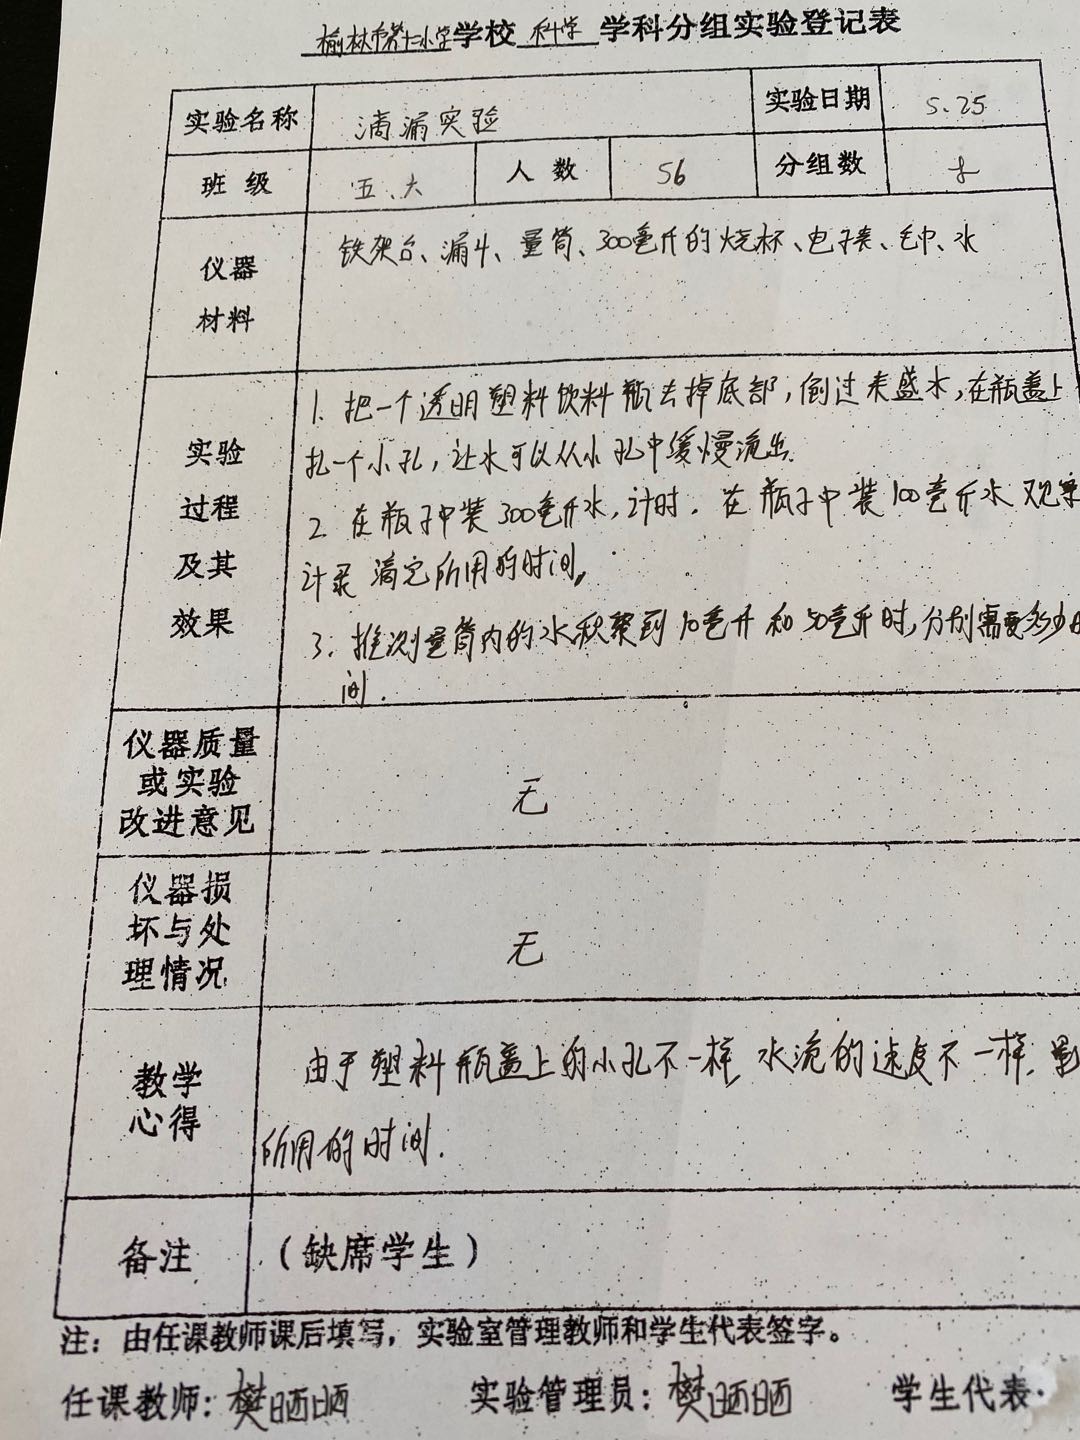 榆林市第十二小学学校 科学 学科分组实验登记表
实验名称 滴漏实验 实验日期 5.25
班级 五、六 人数 56 分组数 8
仪器材料 铁架台、漏斗、量筒、300毫升的烧杯、电子表、毛巾、水
实验过程及其效果
1. 把一个透明塑料饮料瓶去掉底部,倒过来盛水,在瓶盖上
扎一个小孔,让水可以从小孔中缓慢流出.
2 在瓶子中装300毫升水,计时. 在瓶子中装100毫升水 观察
计录 滴完所用的时间。
3. 推测量筒内的水积聚到10毫升和50毫升时,分别需要多少时
间.
仪器质量或实验改进意见 无
仪器损坏与处理情况 无
教学心得
由于塑料瓶盖上的小孔不一样,水流的速度不一样.影
所用的时间.
备注 (缺席学生)
注:由任课教师课后填写,实验室管理教师和学生代表签字。
任课教师:樊晒晒 实验管理员:樊晒晒 学生代表